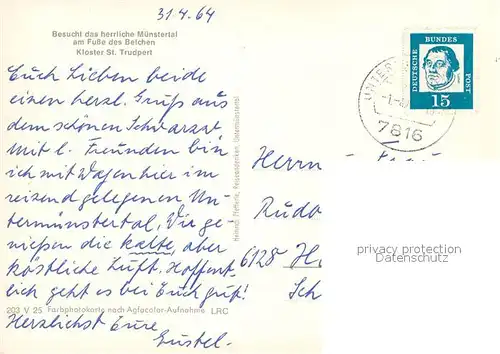 31.4.64
Besucht das herrliche Münstertal
am Fuße des Belchen
Kloster St. Trudpert
Euch Lieben beide
einen herzl. Gruß aus
dem schönen Schwarzw.
Mit l. Freunden bin
ich mit Wagen hier im
reizend gelegenen Un-
termünstertal, Wir ge-
nießen die kalte, aber
köstliche Luft. Hoffent-
lich geht es bei Euch gut!
203 V 25 Farbphotokarte nach Agfacolor-Aufnahme LRC
Herzlichst Eure
Gustel.
DEUTSCHE BUNDES POST
15
7816
Herrn
Rudo
6128 H
Sch
privacy protection
Datenschutz